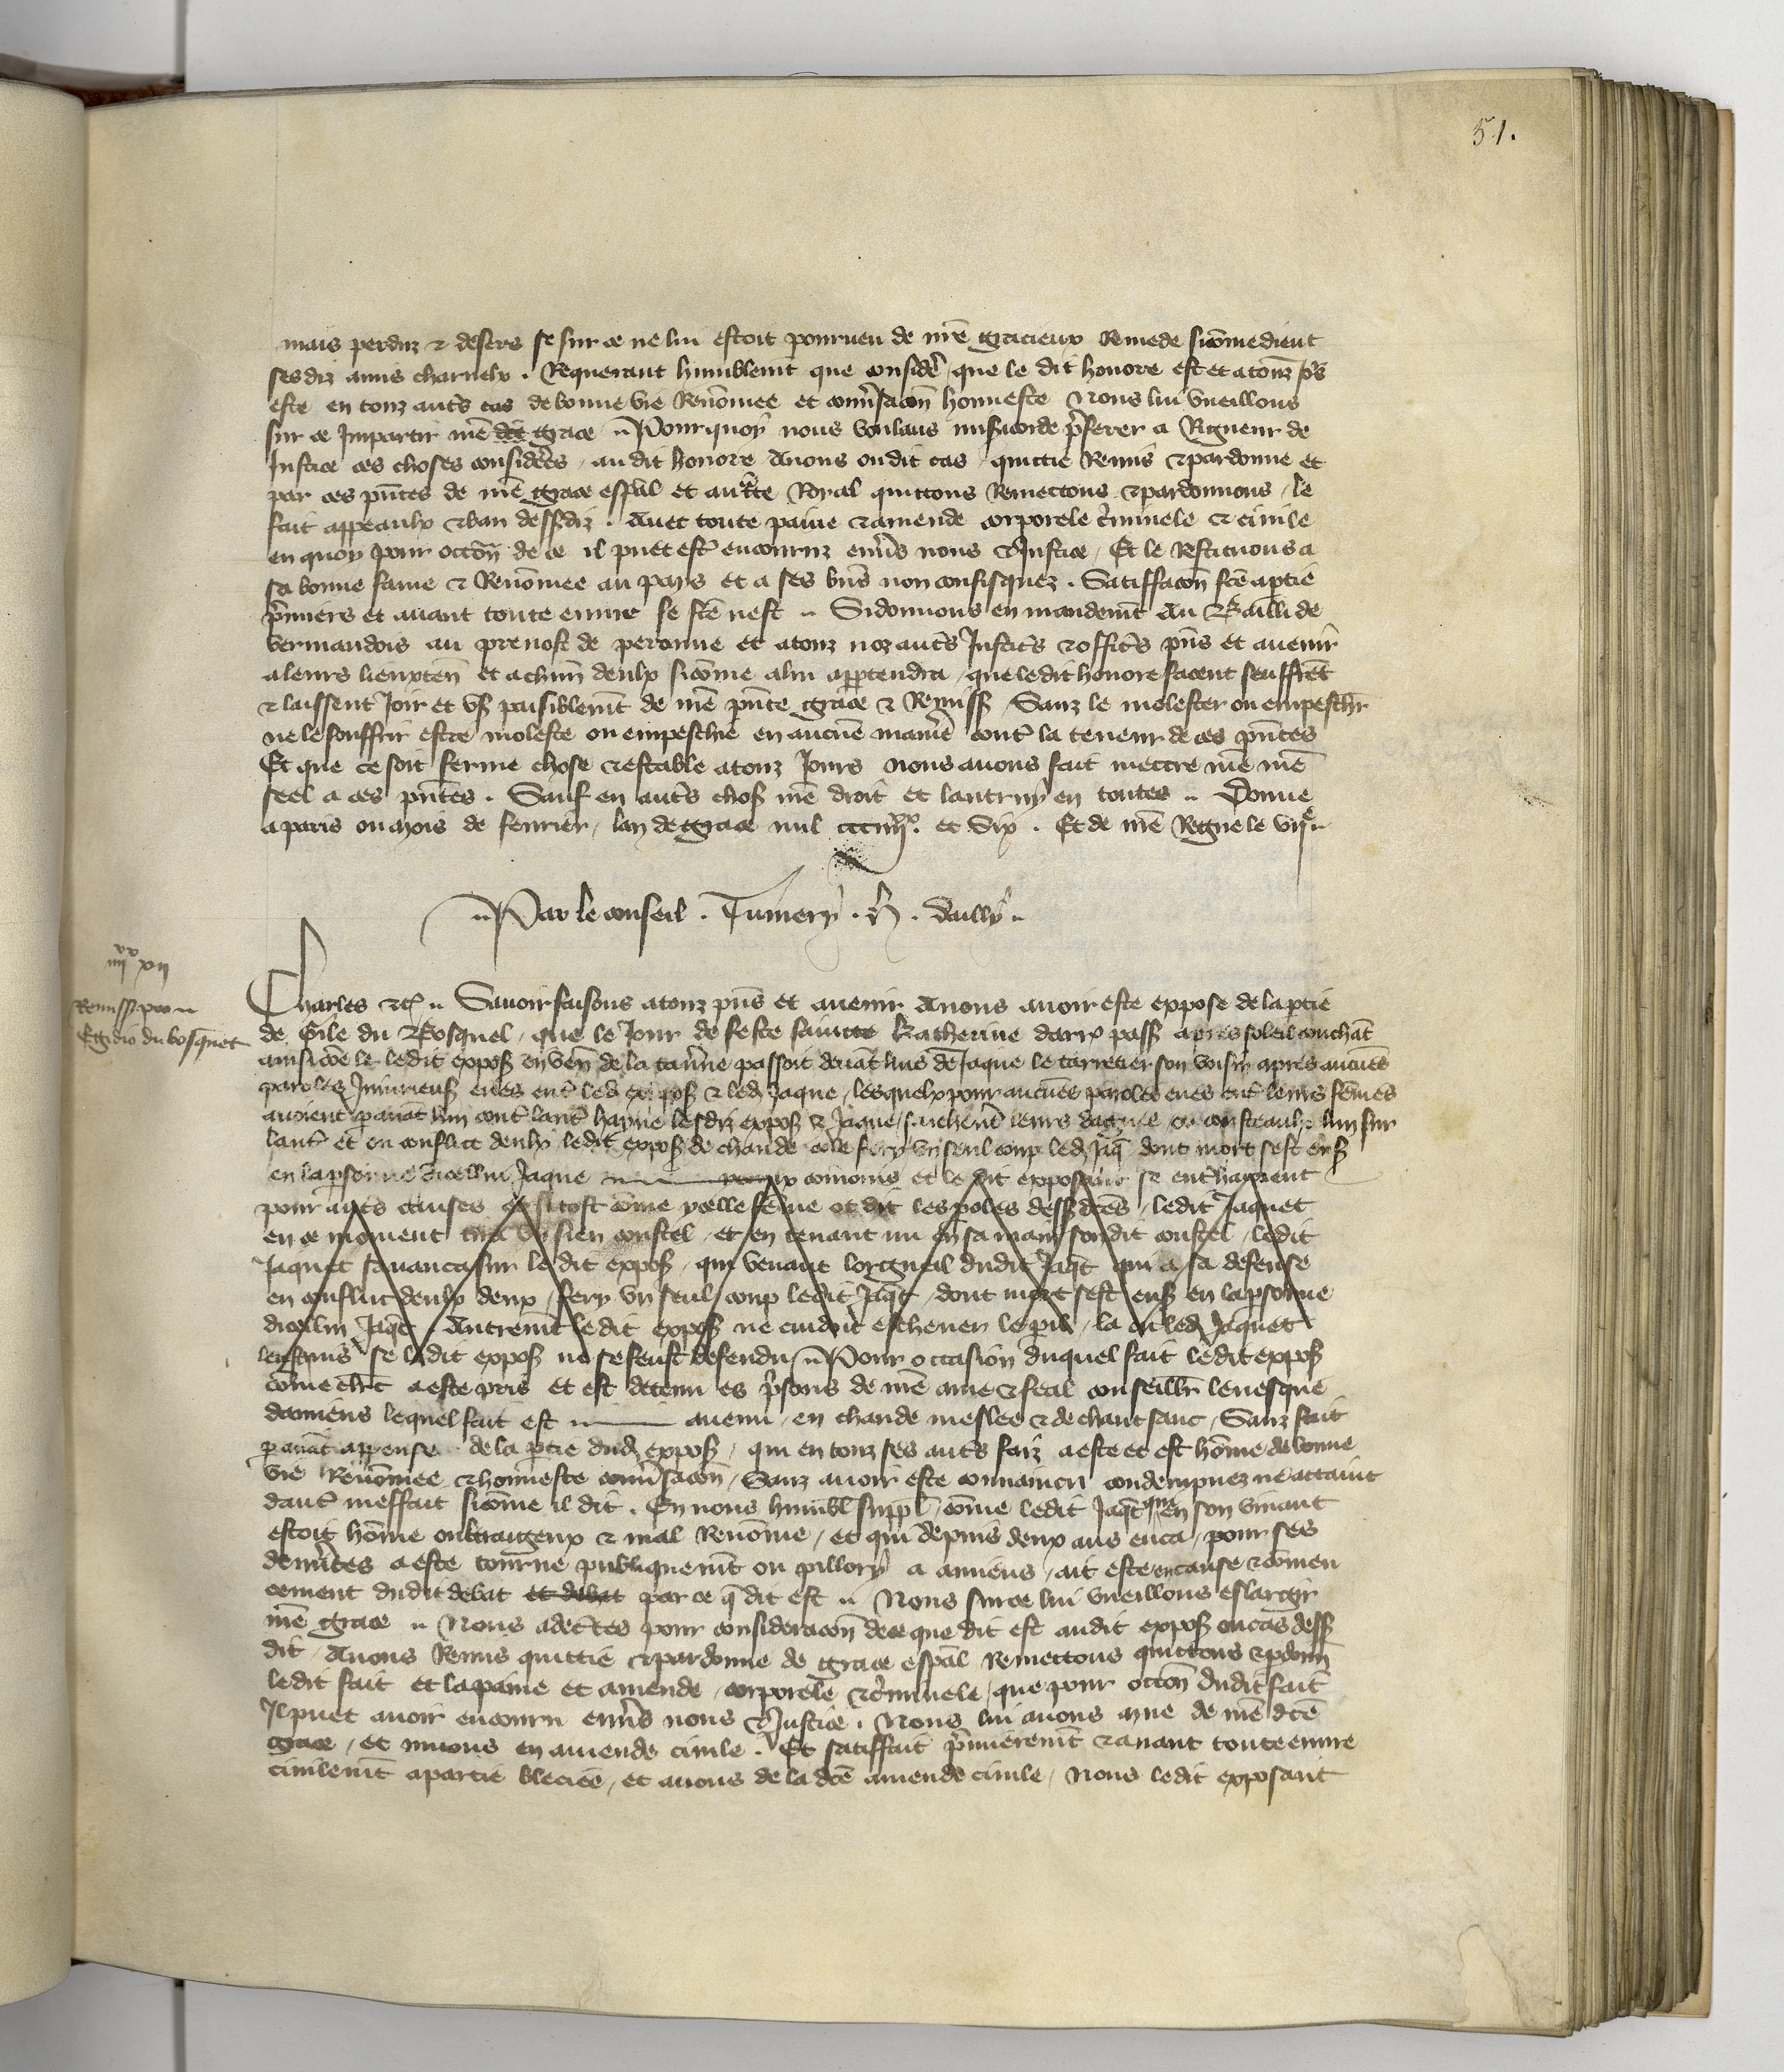 51.
mais perduz & desers se sur ce ne lui estoit pourueu de nr̃e gracieux Remede sicõme dient
ses diz amis charnelx . Requerant humblemt que consider̃ que le dit honore est et a touz jo's
este en touz autr̃s cas de bonne vie Renõmee et conũsacõn honneste Nous lui vueillons
sur ce Impartir nr̃e dit grace .. Pourquoy nous voulans misericorde p̃ferer a Rigueur de
Justice ces choses considerés au dit honore Auons ou dit cas quittie Remis & pardonne et
par ces pñtes de nr̃e grace esp̃al et auc̃te Royal quittons Remettons & pardonnons le
fait appeaulx & ban dessusdiz . Auec toute paine & amende corporele c̃minele & ciuile
en quoy pour occõn de ce il puet est̃ encouruz enũs nous & Justice Et le Restituons a
sa bonne fame & Renõmee au pays et a ses bñs non confisquez . Satiffacõn fc̃e a p̃tie
p̃miers et auant toute euure se fc̃e nest .. Si donnons en mandemt̃ Au Bailli de
vermandois au preuost de peronne et a touz noz autr̃s Justic̃s & offic̃s pñs et auenir
a leurs lieuxten̄ et a chm̃ deulx sicõme a lui app̃tendra que ledit honore facent seuffrẽt
& laissent Joir et vs̃ paisiblemt̃ de nr̃e pñte grace & Remiss̃ Sanz le molester ou empesch̃r
ne le souffrir estre moleste ou empeschie en aucũe maniẽ cont̃ la teneur de ces pñtes
Et que ce soit ferme chose & estable a touz Jours nous auons fait mettre nr̃e
seel a ces pñtes . Sauf en autr̃s chos̃ nr̃e droit et lautruy en toutes .. Donne
a paris ou mois de feurier lan de grace mil ccciiijxx. et Six . Et de nr̃e Regne le vije ..
.. Par le conseil . Tumery . . dailly ..
iiijxx xij
Remiss̃ pro
Egidio du bosquet
Charles &c̃ .. Sauoir faisons a touz pñs et auenir Auons auoir este expose de la p̃tie
de Gile du Bosquel que le Jour de feste saincte Katherine darrx pass̃ apres soleil couchãt
ainsicõe le ledit expos̃ en ven̄ de la tau̾ne passoit deuãt luis de Jaque le carretier son voisin apres aucũes
paroles Iniurieus̃ eues ent̃ led̃ expos̃ & led̃ Jaque lesquelx pour aucũes paroles eues ent̃ leurs fẽmes
auoient pauãt lun cont̃ laut̃ hayne lesdiz expos̃ & Jaque sachent̃ leurs dagues ou cousteaulx lun sur
laut̃ et en conflict deulx ledit expos̃ de chaude cole fery vn seul coup led̃ Jaq̃ dont mort sest ens̃
en la p̃sonne dicellui Jaque et le dit exposant se ent̃hayoient
pour autr̃s causes si tost cõme ycelle fẽme ot dit les poles dess̃ dc̃es ledit Jaquet
en ce moment tira vn sien coustel et en tenant nu en sa main son dit coustel ledit
Jaquet sauanca sur le dit expos̃ qui venant lorgueil dudit Jaq̃t qui a sa defense
en conflict deulx deux fery vn seul coup ledit Jaq̃t dont mort sest ens̃ en la p̃sonne
dicellui Jaq̃t Autremt̃ ledit expos̃ ne cuidoit escheuer le p̃il la ou led̃ Jaquet
se ledit expos̃ ne se feust defendu .. Pour occasion duquel fait le dit expos̃
cõme clerc a este pris et est detenu es p̃sons de nr̃e ame & feal conseillr̃ leuesque
damiens lequel fait est auenu en chaude meslee & de chaut sanc Sanz fait
pauãt appense de la p̃tie dud̃ expos̃ qui en touz ses autr̃s faiz a este et est hõme de bonne
vie Renõmee & honneste conũsacõn Sanz auoir este conuaincu condempnez ne attaint
daut̃ meffait sicõme il dit . En nous humbl̃ suppl̃ cõme ledit Jaq̃t en son viuant
estoit hõme oultrageux & mal Renõme et qui depuis deux ans enca pour ses
dem̃ites a este tourne publiquemt̃ ou pillory a amiens ait este en cause & cõmen
cement dudit debat et debat par ce q̃ dit est .. Nous sur ce lui vueillons eslargir
nr̃e grace .. Nous adec̃tes pour consideracõn de ce que dit est audit expos̃ ou cas dess̃
dit Auons Remis quittie & pardonne de grace esp̃al Remettons quittons & p̃donn̄
le dit fait et la paine et amende corporele & c̃minele que pour occõn dudit fait
Il puet auoir encouru enũs nous & Justice . Nous lui auons mue de nr̃e dc̃e
grace et muons en amende ciuile . Et satiffait p̃mieremt̃ & auant toute euure
ciuilemt̃ a partie bleciee et auons de la dc̃e amende ciuile Nous ledit exposant